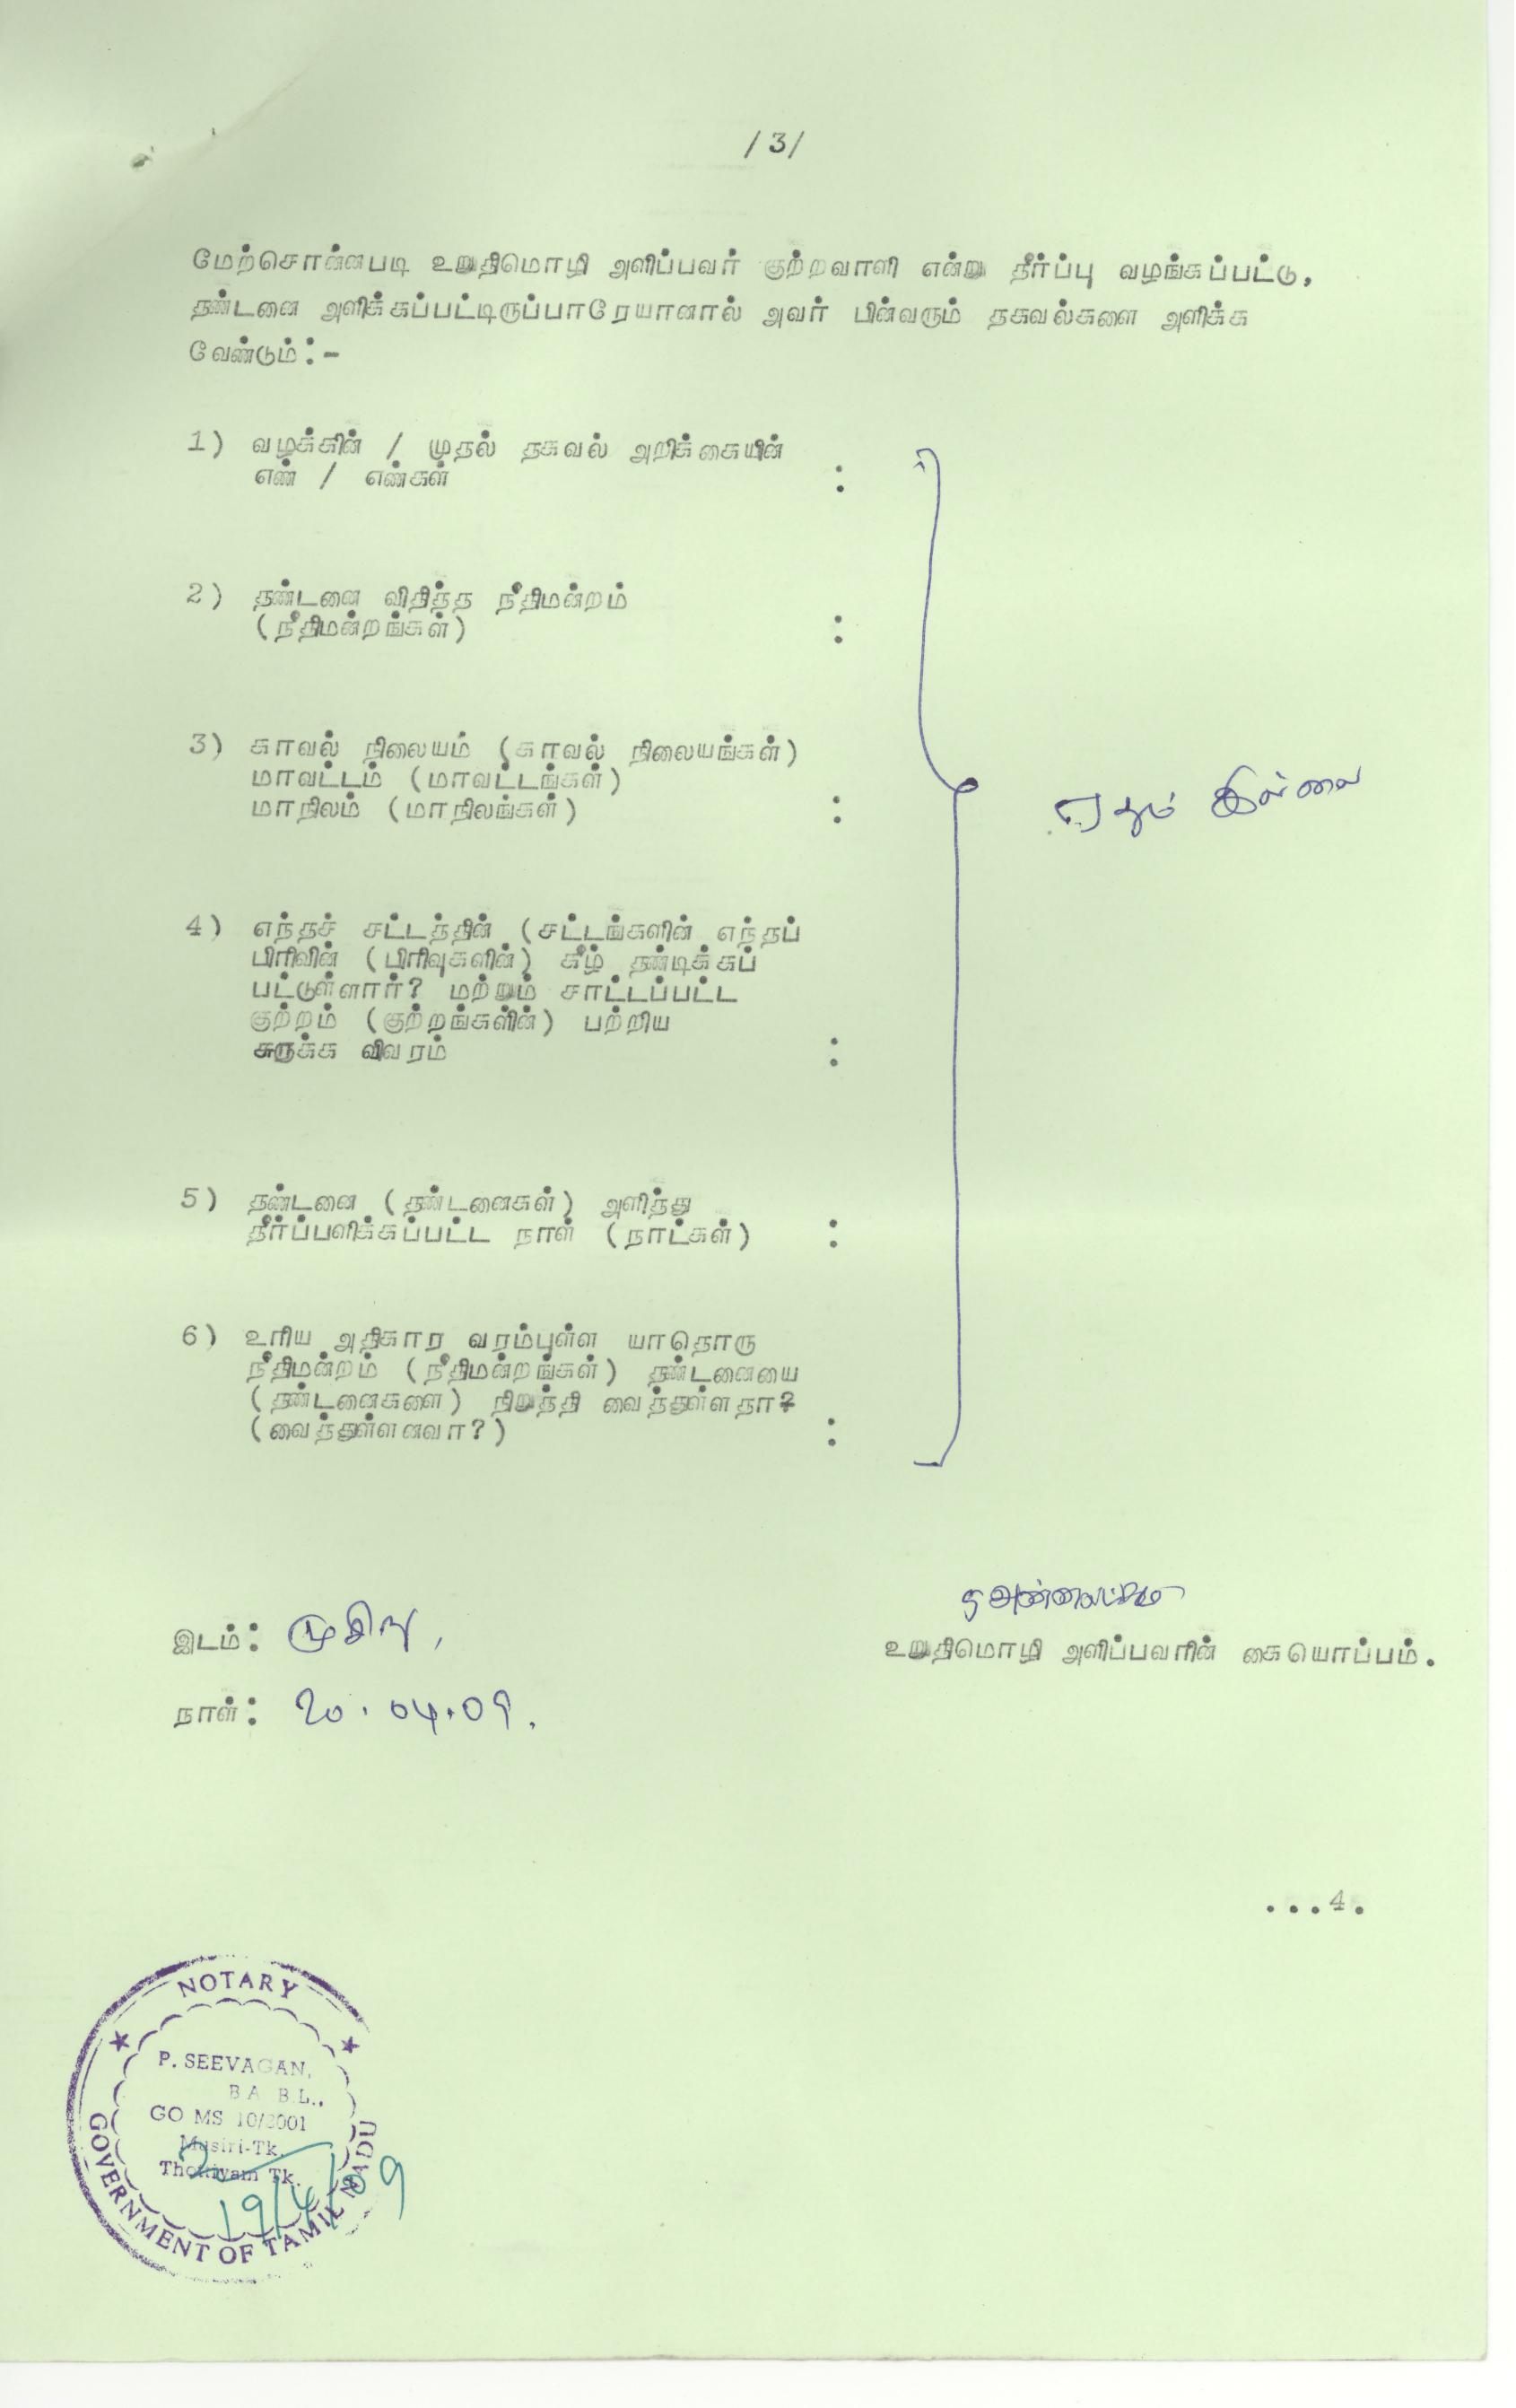 /3/
மேற்சொன்னபடி உறுதிமொழி அளிப்பவர் குற்றவாளி என்று தீர்ப்பு வழங்கப்பட்டு,
தண்டனை அளிக்கப்பட்டிருப்பாரேயானால் அவர் பின்வரும் தகவல்களை அளிக்க
வேண்டும்:-
1) வழக்கின் / முதல் தகவல் அறிக்கையின்
எண் / எண்கள் :
2) தண்டனை விதித்த நீதிமன்றம்
(நீதிமன்றங்கள்) :
3) காவல் நிலையம் (காவல் நிலையங்கள்)
மாவட்டம் (மாவட்டங்கள்)
மாநிலம் (மாநிலங்கள்) :
ஏதும் இல்லை
4) எந்தச் சட்டத்தின் (சட்டங்களின் எந்தப்
பிரிவின் (பிரிவுகளின்) கீழ் தண்டிக்கப்
பட்டுள்ளார்? மற்றும் சாட்டப்பட்ட
குற்றம் (குற்றங்களின்) பற்றிய
சுருக்க விவரம் :
5) தண்டனை (தண்டனைகள்) அளித்து
தீர்ப்பளிக்கப்பட்ட நாள் (நாட்கள்) :
6) உரிய அதிகார வரம்புள்ள யாதொரு
நீதிமன்றம் (நீதிமன்றங்கள்) தண்டனையை
(தண்டனைகளை) நிறுத்தி வைத்துள்ளதா?
(வைத்துள்ளனவா?) :
இடம்: முசிறி,
உறுதிமொழி அளிப்பவரின் கையொப்பம்.
நாள்: 20.04.09.
...4.
NOTARY
P. SEEVAGAN,
B A B.L.,
GO MS 10/2001
Musiri-Tk.
Thottiyam Tk.
GOVERNMENT OF TAMIL NADU
19/4/09